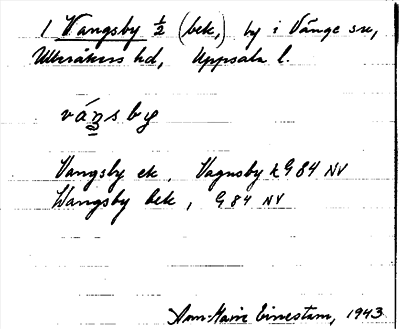 1 Vangsby ½ (bek,) by i Vänge sn,
Ulleråkers hd, Uppsala l.
váṉsby
Vangsby ek, Vagnsby k G 84 NV
Wangsby bek, G 84 NV
Ann-Marie Einestam, 1943